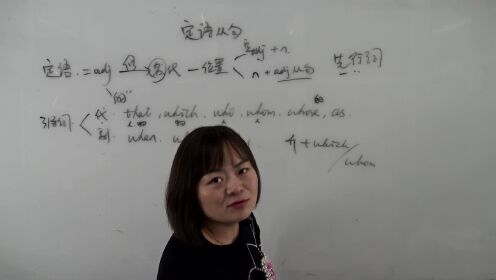 定语从句
adj + n
定语 = adj 修 名代 — 位置 先行词
"的" n + adj从句
引导词 代 that, which, who, whom, whose, as
的
副 when 介 + which
/whom